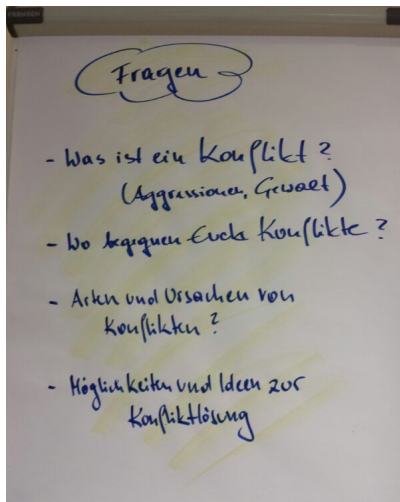 Fragen
- Was ist ein Konflikt?
(Aggressionen, Gewalt)
- Wo begegnen Euch Konflikte?
- Arten und Ursachen von
Konflikten?
- Möglichkeiten und Ideen zur
Konfliktlösung